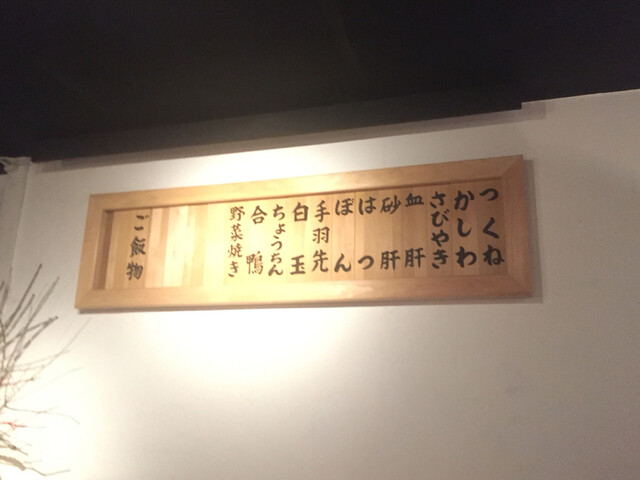 つくね
かしわ
さびやき
血肝
砂肝
はつ
ぼん
手羽先
白玉
ちょうちん
合鴨
野菜焼き
ご飯物